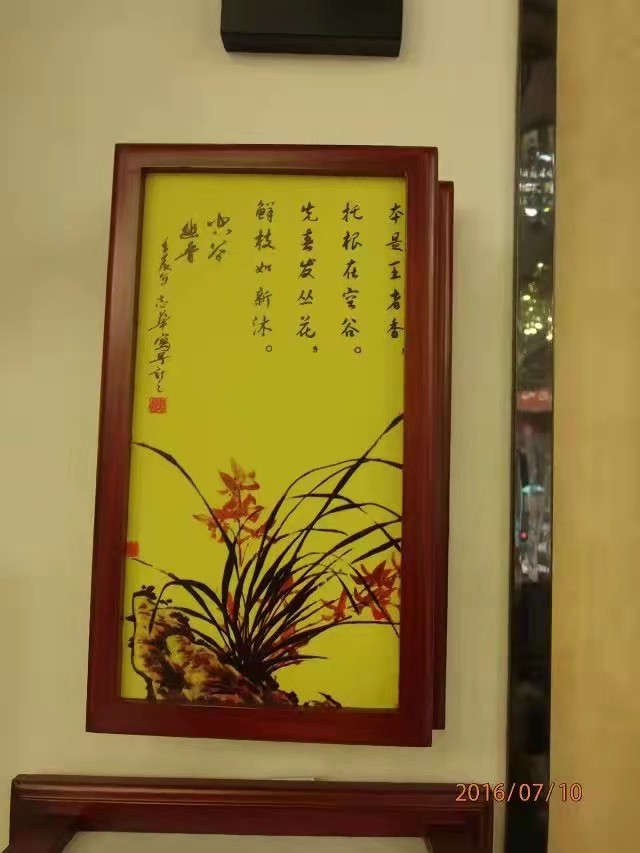 本是王者香，
托根在空谷。
先春发丛花，
鲜枝如新沐。
空谷
幽香
2016/07/10